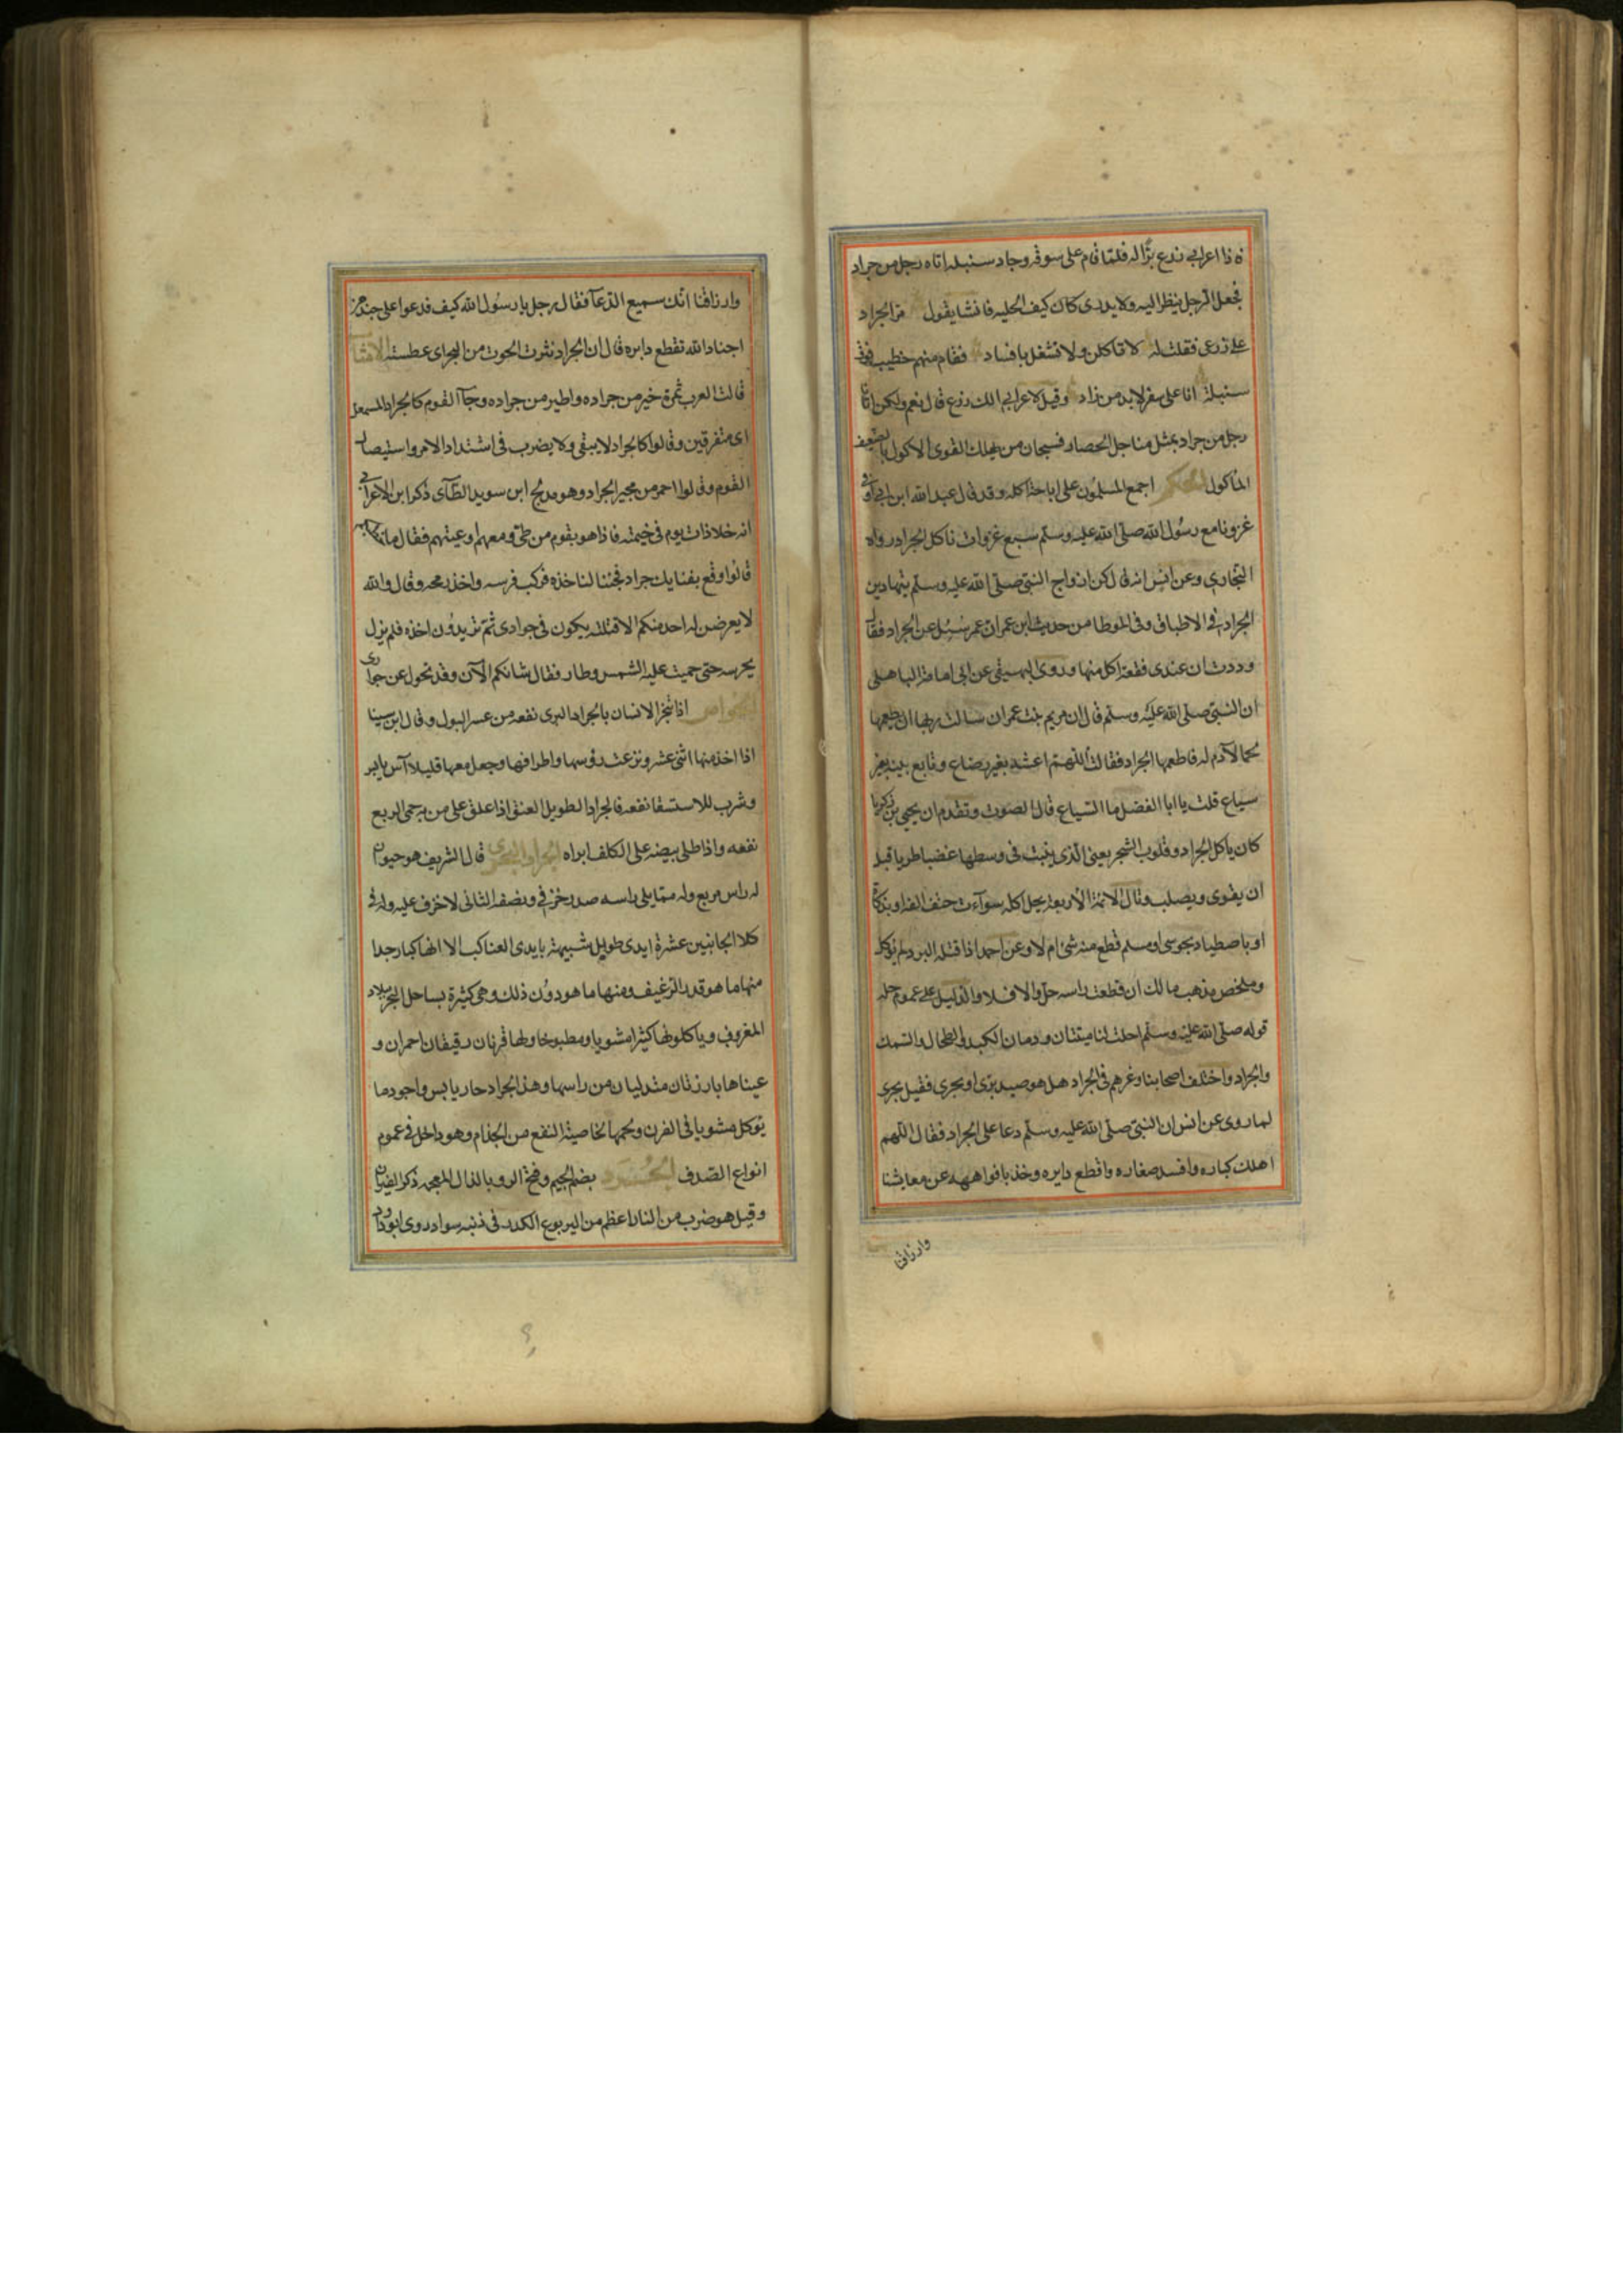 فاذا اعرابي زرع برًّا له فلمّا قام على سوقه وجاد سنبله اتاه رجل من جراد
فجعل الرجل ينظر اليه ولا يدرى كان كيف الحليه فانشا يقول مرّ الجراد
على زرعى فقلت له لا تاكلن ولا تشغل بافساد فقام منهم خطيب فوق
سنبلة انا على سفر لا بد من زاد وقيل لاعرابى الك زرع قال نعم ولكن اتانا
رجل من جراد بمثل مناجل الحصاد فسبحان من يهلك القوى الاكول بالضعيف
الماكول الحكم اجمع المسلمون على اباحة اكله وقد قال عبد الله ابن ابى اوفى
غزونا مع رسُول الله صلّى الله عليه وسلّم سبع غزوات ناكل الجراد رواه
البخارى وعن انس انه قال كن ازواج النبىّ صلّى الله عليه وسلّم يتهادين
الجراد فى الاطباق وفى الموطا من حديث ابن عمر ان عمر سُئل عن الجراد فقال
وددت ان عندى قفعة اكل منها وروى البهيقى عن ابى امامة الباهلى
ان النبىّ صلّى الله عليه وسلّم قال ان مريم بنت عمران سالت ربها ان يطعمها
لحما لا دم له فاطعمها الجراد فقالت اللّهمّ اعشه بغير رضاع وتابع بينه بغير
سياع قلت يا ابا الفضل ما السّياع قال الصوت وتقدم ان يحيى بن زكريا
كان ياكل الجراد وقلوب الشجر يعنى الّذى ينبت فى وسطها غضا طريا قبل
ان يقوى ويصلب وقال الائمة الاربعة يحل اكله سوآء مات حتف انفه او بذكاة
او باصطياد مجوسى او مسلم قطع منه شئ ام لا وعن احمد اذا قتله البرد لم يوكل
وملخص مذهب مالك ان قطعت راسه حل والا فلا والدليل على عموم حله
قوله صلّى الله عليه وسلّم احلت لنا ميتتان ودمان الكبد والطحال والسّمك
والجراد واختلف اصحابنا وغرهم فى الجراد هل هو صيد برّى او بحرى فقيل بحرى
لما روى عن انس ان النبىّ صلّى الله عليه وسلّم دعا على الجراد فقال اللّهم
اهلك كباره وافسد صغاره واقطع دابره وخذ بافواهه عن معايشنا
وارزاقنا
وارزاقنا انّك سميع الدّعآ فقال رجل يا رسُول الله كيف تدعوا على جند من
اجناد الله تقطع دابره قال ان الجراد نثرت الحوت من البحر اى عطسته الامثال
قالت العرب تمرة خير من جراده واطير من جراده وجآ القوم كالجراد المشعل
اى متفرقين وقالوا كالجراد لا يبقى ولا يضرب فى اشتداد الامر واستيصال
القوم وقالوا احمر من مجير الجراد وهو مدلج ابن سويد الطّآى ذكر ابن الاعرابى
انه خلا ذات يوم فى خيمته فاذا هو بقوم من طى ومعهم اوعيتهم فقال ما
قالوا وقع بفنايك جراد فجئنا لناخذه فركب فرسه واخذ رمحه وقال والله
لا يعرضن له احد منكم الا قتلته يكون فى جوارى ثمّ تريدُون اخذه فلم يزل
يحرسه حتى حميت عليه الشّمس وطار فقال شانكم الآن وقد تحول عن جوارى
الخواص اذا تبخر الانسان بالجراد البرى نفعه من عسر البول وقال ابن سينا
اذا اخذ منها اثنى عشر ونزعت رؤسها واطرافها وجعل معها قليلا آس يابس
وشرب للاستسقا نفعه فالجراد الطويل العنق اذا علق على من به حمى الربع
نفعه واذا طلى ببيضه على الكلف ابراه الجراد البحرى قال الشريف هو حيوان
له راس مربع وله ممّا يلى راسه صدر خزفى ونصفه الثانى لا خزف عليه وله فى
كلا الجانبين عشرة ايدى طويل شبيهة بايدى العناكب الا انها كبار جدا
منها ما هو قدر الرّغيف ومنها ما هو دوُن ذلك وهى كثيرة بساحل البحر ببلاد
المغرب وياكلونها كثيرا مشويا ومطبوخا ولها قرنان دقيقان احمران و
عيناها بارزتان متدليان من راسها وهذا الجراد حار يابس واجود ما
يؤكل مشويا فى الفرن ولحمها لخاصية النفع من الجذام وهو داخل فى عموم
انواع الصّدف الجُرَذ بضم الجيم وفتح الرو بالذال المعجمة ذكر الفيران
وقيل هو ضرب من الفار اعظم من اليربوع الكدر فى ذنبه سواد روى ابو داود